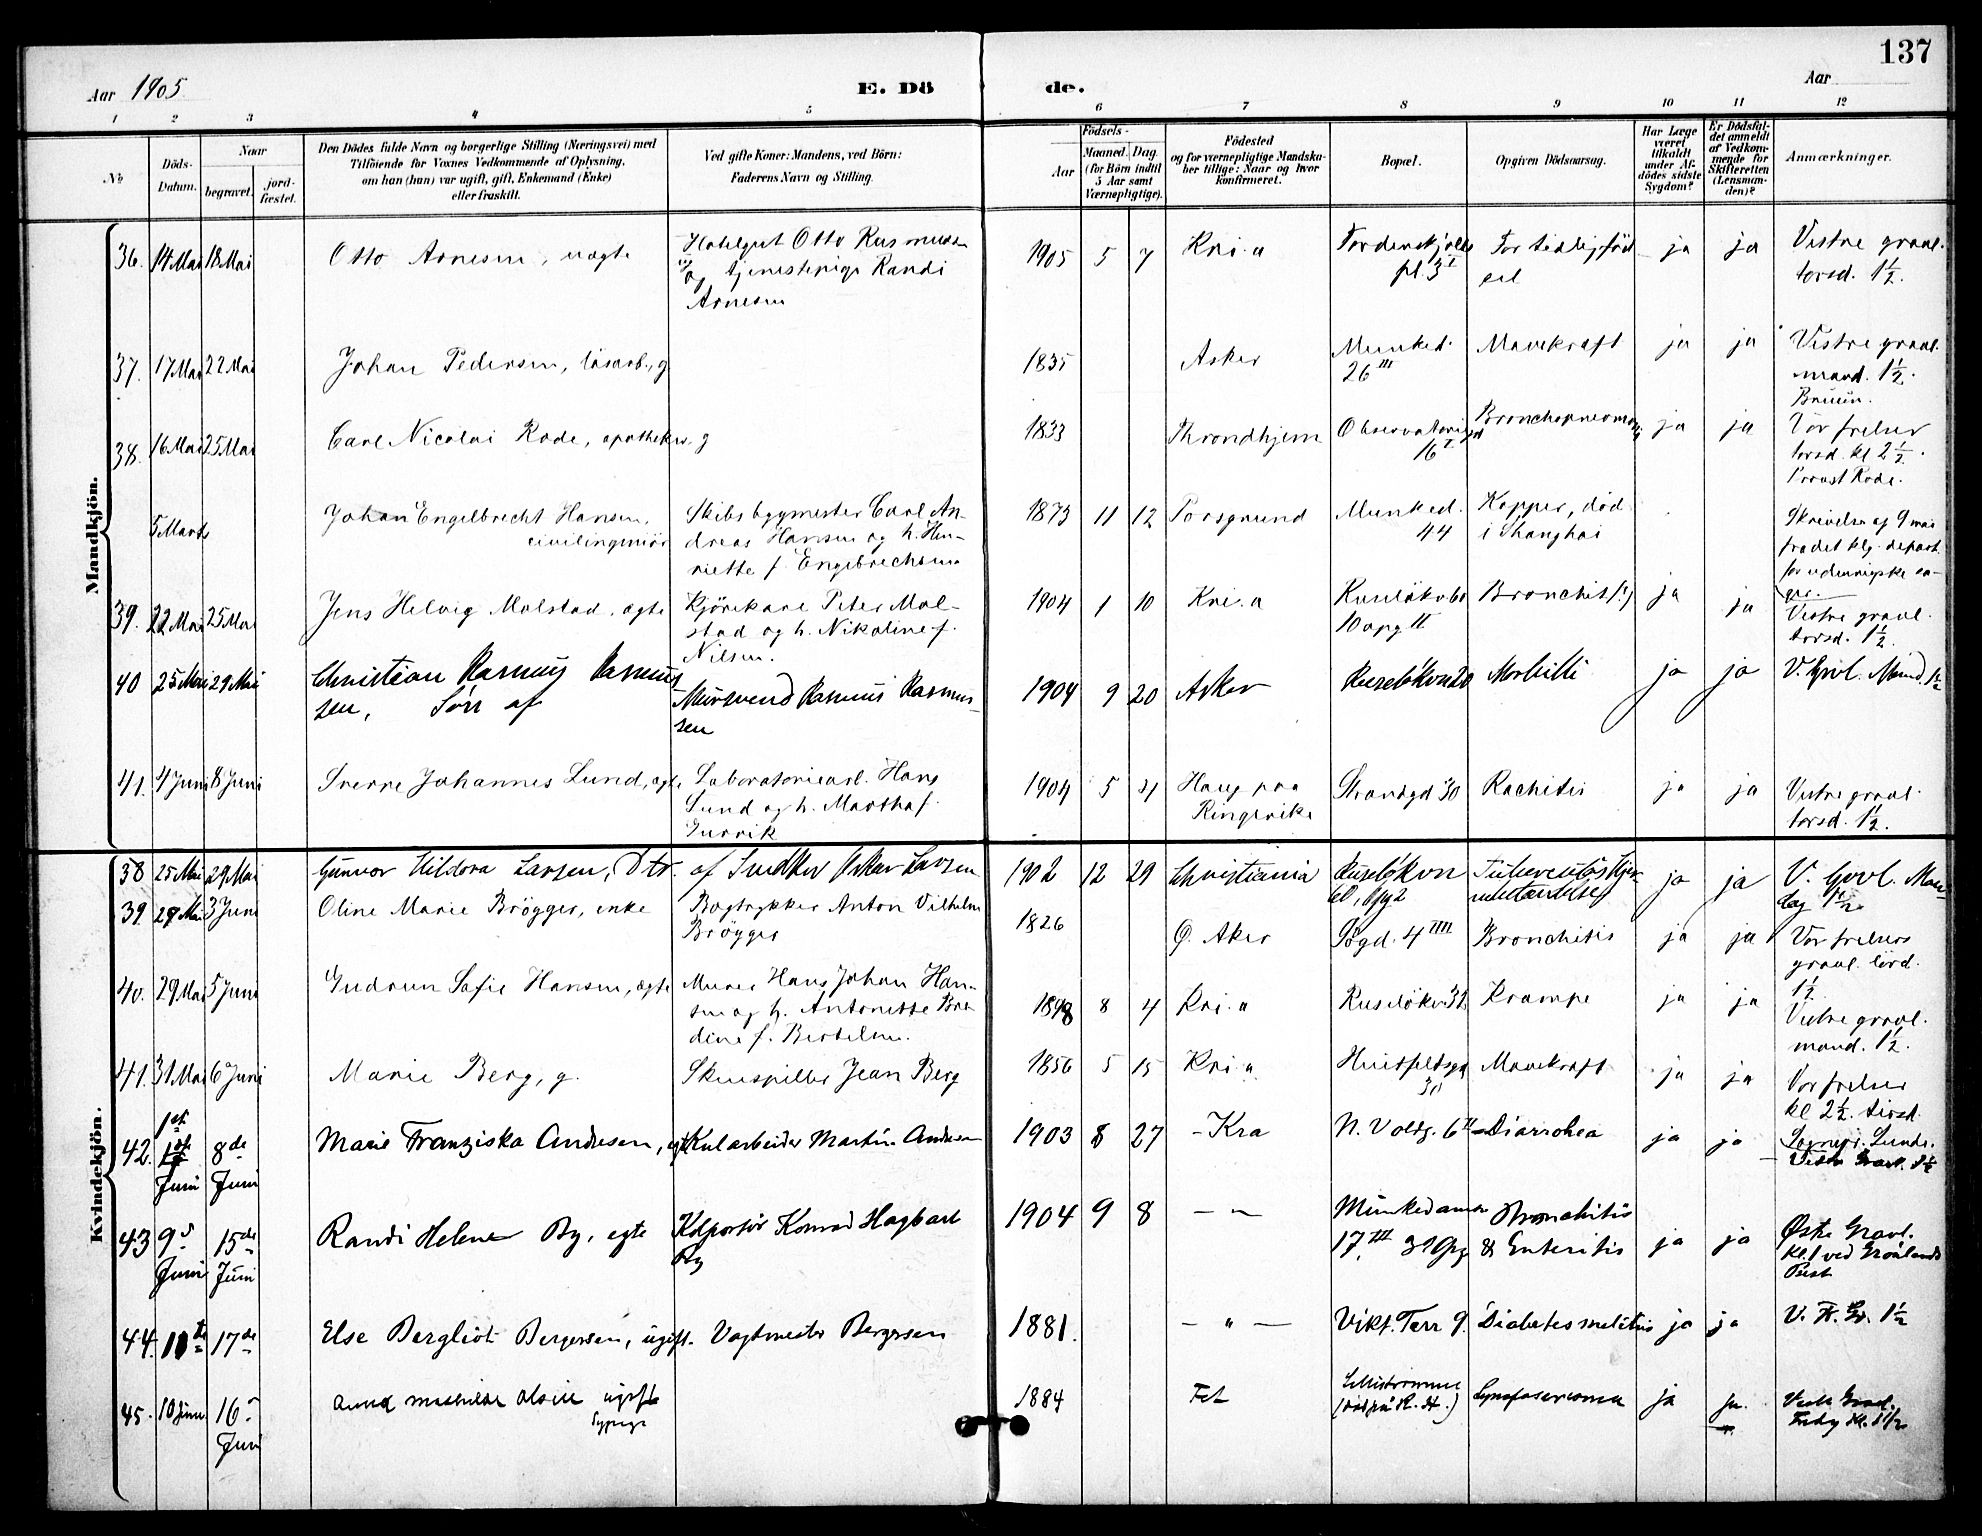 137
Aar 1905
E. Dö de.
Aar
1 2 3 4 5 6 7 8 9 10 11 12
No
Döds-Datum.
Naar
begravet.
jord-fæstet.
Den Dödes fulde Navn og borgerlige Stilling (Næringsvei) med
Tilföiende for Voxnes Vedkommende af Oplysning,
om han (hun) var ugift, gift, Enkemand (Enke)
eller fraskilt.
Ved gifte Koner: Mandens, ved Börn:
Faderens Navn og Stilling.
Födsels-
Aar
Maaned. Dag.
(for Börn indtil
5 Aar samt
Værnepligtige).
Födested
og for værnepligtige Mandska-
ber tillige: Naar og hvor
konfirmeret.
Bopæl.
Opgiven Dödsaarsag.
Har Læge
været
tilkaldt
under Af-
dödes sidste
Sygdom?
Er Dödsfal-
det anmeldt
af Vedkom-
mende for
Skifteretten
(Lensman-
den)?
Anmærkninger.
Mandkjön.
36. 14 Mai 18 Mai Otto Arnesen, uægte
og tjenestepige Randi
Arnesen
1905 5 7 Kri.a
pl. 3 I
ja ja Vestre gravl.
torsd. 1½.
37. 17 Mai 22 Mai Johan Pedersen, lösarb., g 1835 Asker Munked.
26 III
Mavekræft ja ja Vestre gravl.
mand. 1½.
Bruun.
38. 16 Mai 25 Mai Carl Nicolai Rode, apotheker, g 1833 Throndhjem
16 I
ja ja Vor frelser
torsd. kl 2½.
Provst Rode.
5 Marts Johan Engelbrecht Hansen,
civilingeniör
Skibsbygmester Carl An-
dreas Hansen og h. Hen-
riette f. Engebrechtsen
1873 11 12 Porsgrund Munked.
44
Kopper, död
i Shanghai
Skrivelse af 9 mai
fra det klg. depart.
for udenrigske sa-
ger.
39. 22 Mai 25 Mai Jens Helvig Molstad, ægte Kjörekarl Peter Mol-
stad og h. Nikoline f.
Nilsen.
1904 1 10 Kri.a
10 opg II
Bronchit ja ja Vestre gravl.
torsd. 1½.
40 25 Mai 29 Mai Christian Rasmus Rasmus-
sen, Sön af
Murersvend Rasmus Rasmus-
sen
1904 9 20 Asker Ruselökvn 20 Morbilli ja ja V. Grvl. Mand. 1½
41. 4 Juni 8 Juni Sverre Johannes Lund, ægte Laboratoriearb. Hans
Lund og h. Martha f.
1904 5 4 Haug paa
Ringerike
Strandgd 30 Rachitis ja ja Vestre gravl.
torsd. 1½.
Kvindekjön.
38 25 Mai 29 Mai Gunvor Hildora Larsen, Dtr. af Snedker Oskar Larsen 1902 12 29 Christiania Ruselökvn
60, Opg 2
ja ja V. Grvl. Man-
dag 1½.
39 29 Mai 3 Juni Oline Marie Brögger, enke Bogtrykker Anton Vilhelm
Brögger
1826 Ø. Aker Bronchitis ja ja Vor frelsers
gravl. lörd.
1½
40. 29 Mai 5 Juni Gudrun Sofie Hansen, ægte Murer Hans Johan Han-
sen og h. Antonette Ber-
dine f. Bertelsen.
1898 8 4 Kri.a Ruselökv. 31 Krampe ja ja Vestre gravl.
mand. 1½.
41. 31 Mai 6 Juni Marie Berg, g. Skuespiller Jean Berg 1856 5 15 Kri.a Huitfeldtsgd
Mavekræft ja ja Vor frelser
kl 2½. tirsd.
42. 1ste Juni 8de Juni Marie Franziska Andresen, egte Kularbeider Martin Andresen 1903 8 27 - Kra N. Voldg. 6 II Diarrohea ja ja
Vestre Gravl. 1½
43 9de Juni 15de Juni Randi Helene By, egte Kolportör Konrad Hagbart
By
1904 9 8 — " — Munkedamsv
17 III
Bronchitis
& Enteritis ja ja Østre Gravl.
Kl. 1 ved Grönlands
44. 11te 17de Else Bergliot Bergersen, ugift. Vagtmester Bergersen 1881. — " — Vikt. Terr 9. Diabetes melitus ja ja V. Fr. Gr. 1½
45. 10 Juni 16de Juni Anna Mathilde Olsen ugift
Sypige
1884 Fet Lilleströmmen
(död på R. H.)
Lymfosarcoma ja ja. Vestre Gravl.
Fredag Kl. 1½